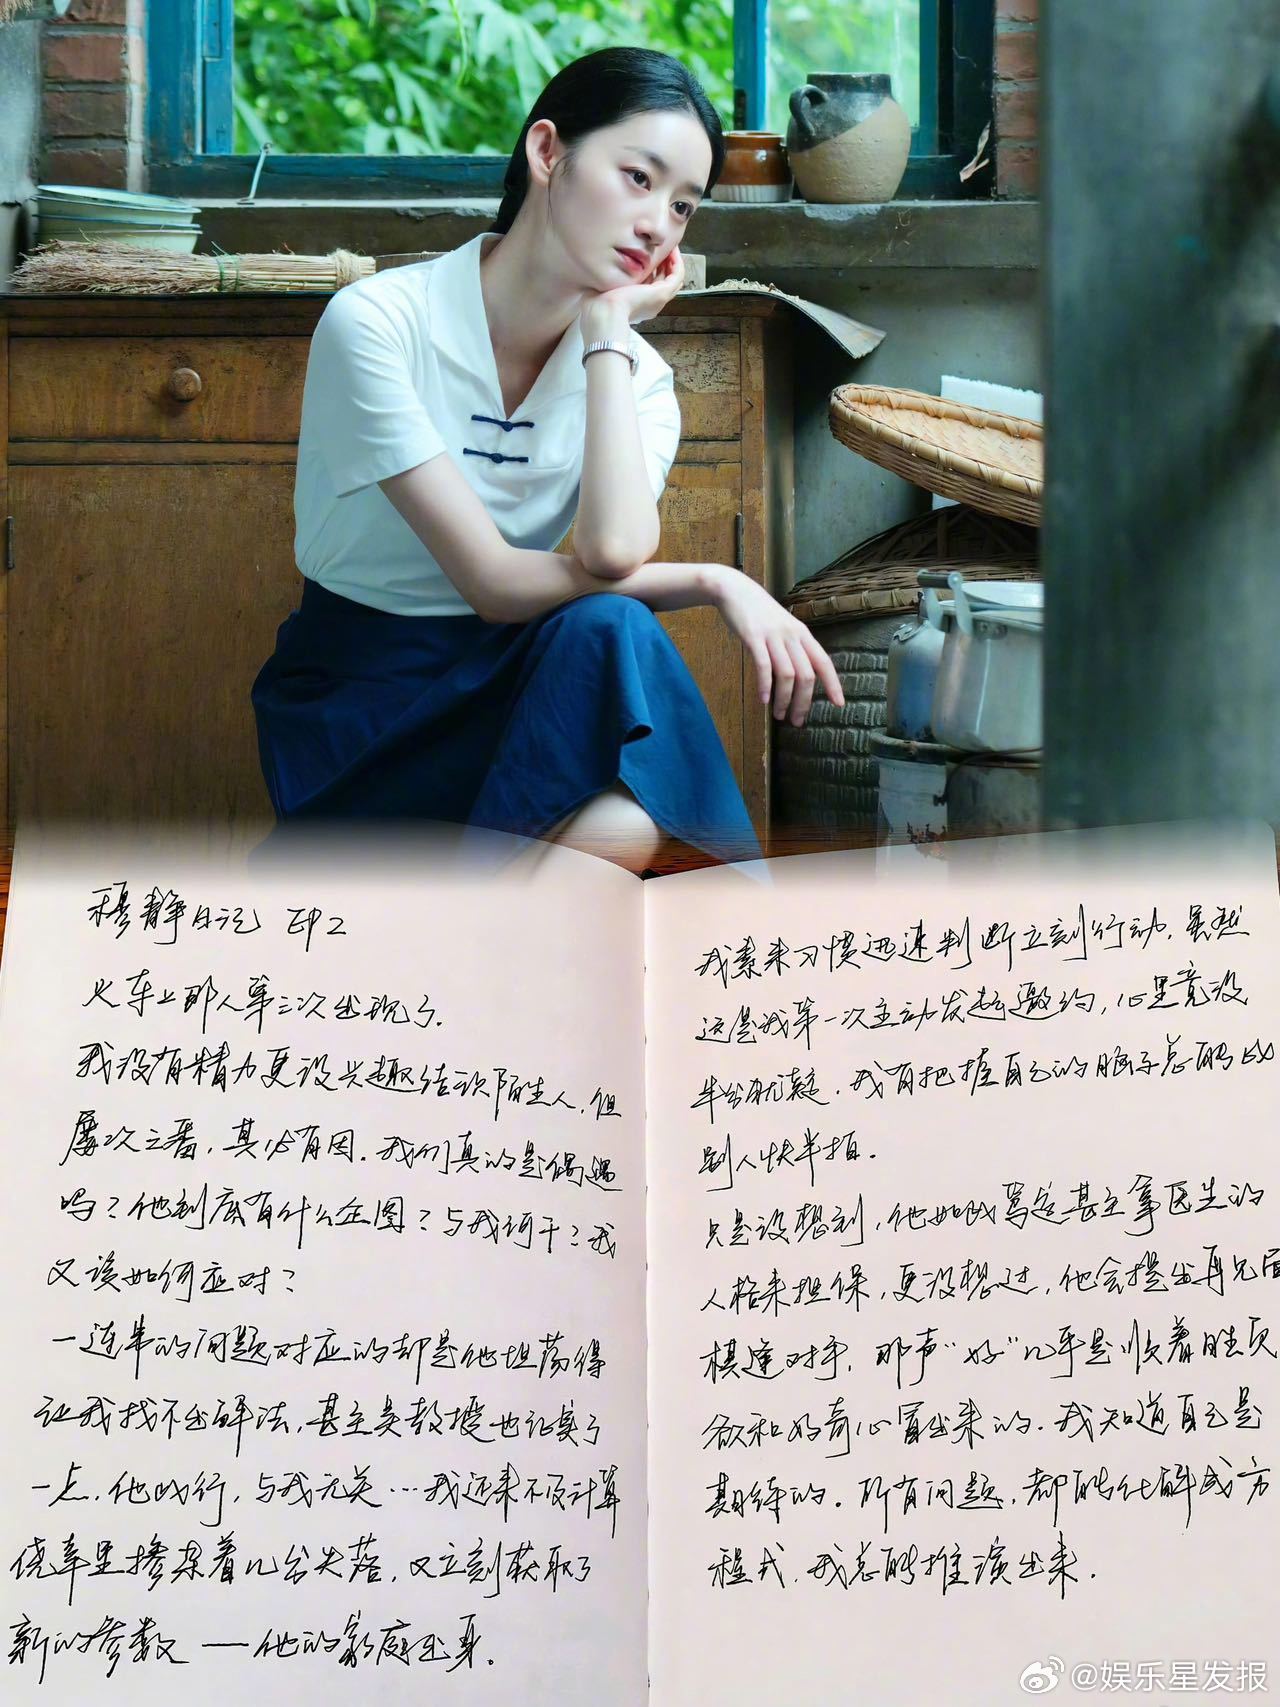 穆静日记 EP2
火车上那人第三次出现了.
我没有精力更没兴趣结识陌生人,但
屡次三番,其必有因.我们真的是偶遇
吗?他到底有什么企图?与我何干?我
又该如何应对?
一连串的问题对应的却是他坦荡得
让我找不出解法,甚至吴教授也证实了
一点,他此行,与我无关…我还来不及计算
侥幸里掺杂着几分失落,又立刻获取了
新的参数——他的家庭出身.
我素来习惯迅速判断立刻行动,虽然
这是我第一次主动发起邀约,心里竟没
半分犹疑,我有把握自己的脑子总能比
别人快半拍.
只是没想到,他如此笃定甚至拿医生的
人格来担保,更没想过,他会提出再见面
棋逢对手,那声"好"几乎是顺着胜负
欲和好奇心冒出来的.我知道自己是
期待的.所有问题,都能化解成方
程式,我总能推演出来.
@娱乐星发报